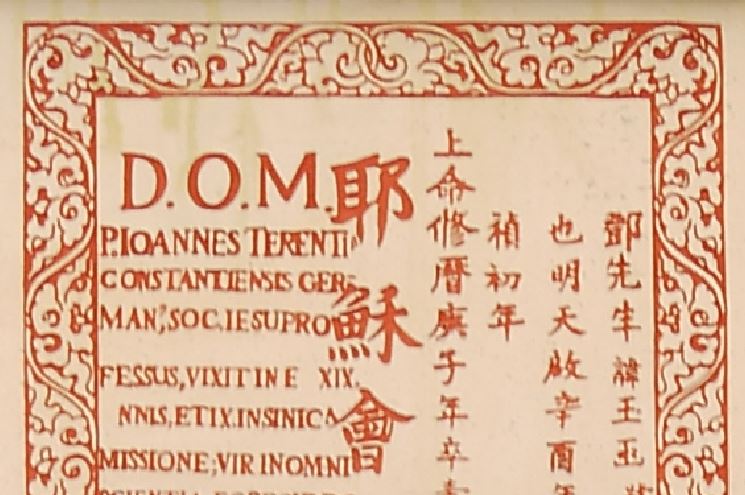 D.O.M.
P. IOANNES TERENTI
CONSTANTIENSIS GER-
MAN, SOC. IESU PRO
FESSUS, VIXIT IN E XIX.
NNIS, ET IX. IN SINICA
MISSIONE; VIR IN OMNI
SCIENTIA
鄧先生諱王
也明天啟辛酉年
禎初年
上命修曆庚子年卒
耶穌會